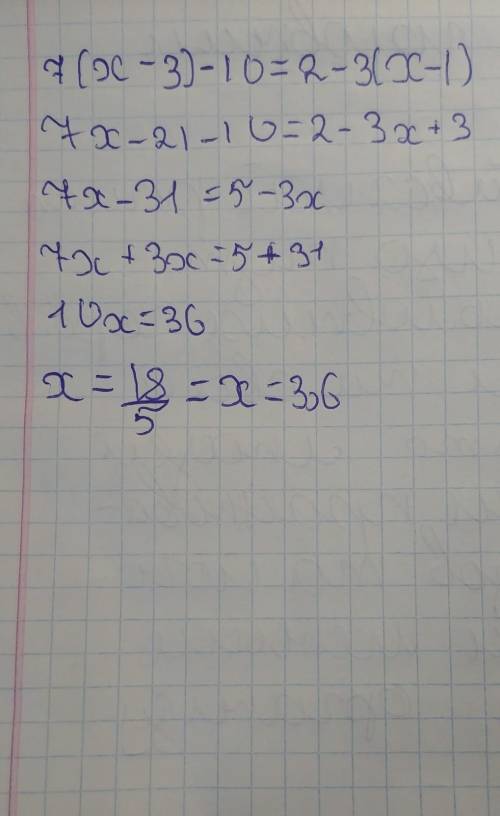 7(x-3)-10=2-3(x-1)
7x-21-10=2-3x+3
7x-31=5-3x
7x+3x=5+31
10x=36
x=18/5=x=3,6